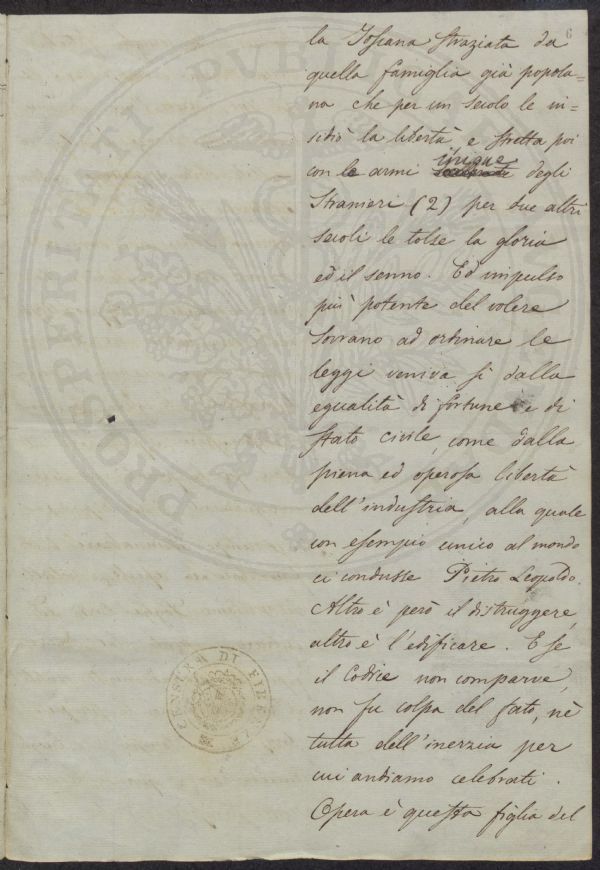 6
la Toscana straziata da
quella famiglia già popola=
na che per un secolo le in=
sidiò la libertà, e stretta poi
con le armi inique degli
Stranieri (2) per due altri
secoli le tolse la gloria
ed il senno. Ed impulso
più potente del volere
Sovrano ad ordinare le
leggi veniva sì dalla
egualità di fortune e di
stato civile, come dalla
piena ed operosa libertà
dell'industria, alla quale
con esempio unico al mondo
ci condusse Pietro Leopoldo.
Altro è però il distruggere,
altro è l'edificare. E se
il Codice non comparve,
non fu colpa del fato, nè
tutta dell'inerzia per
cui andiamo celebrati.
Opera è questa figlia del
PROSPERITATI PUBLICAE